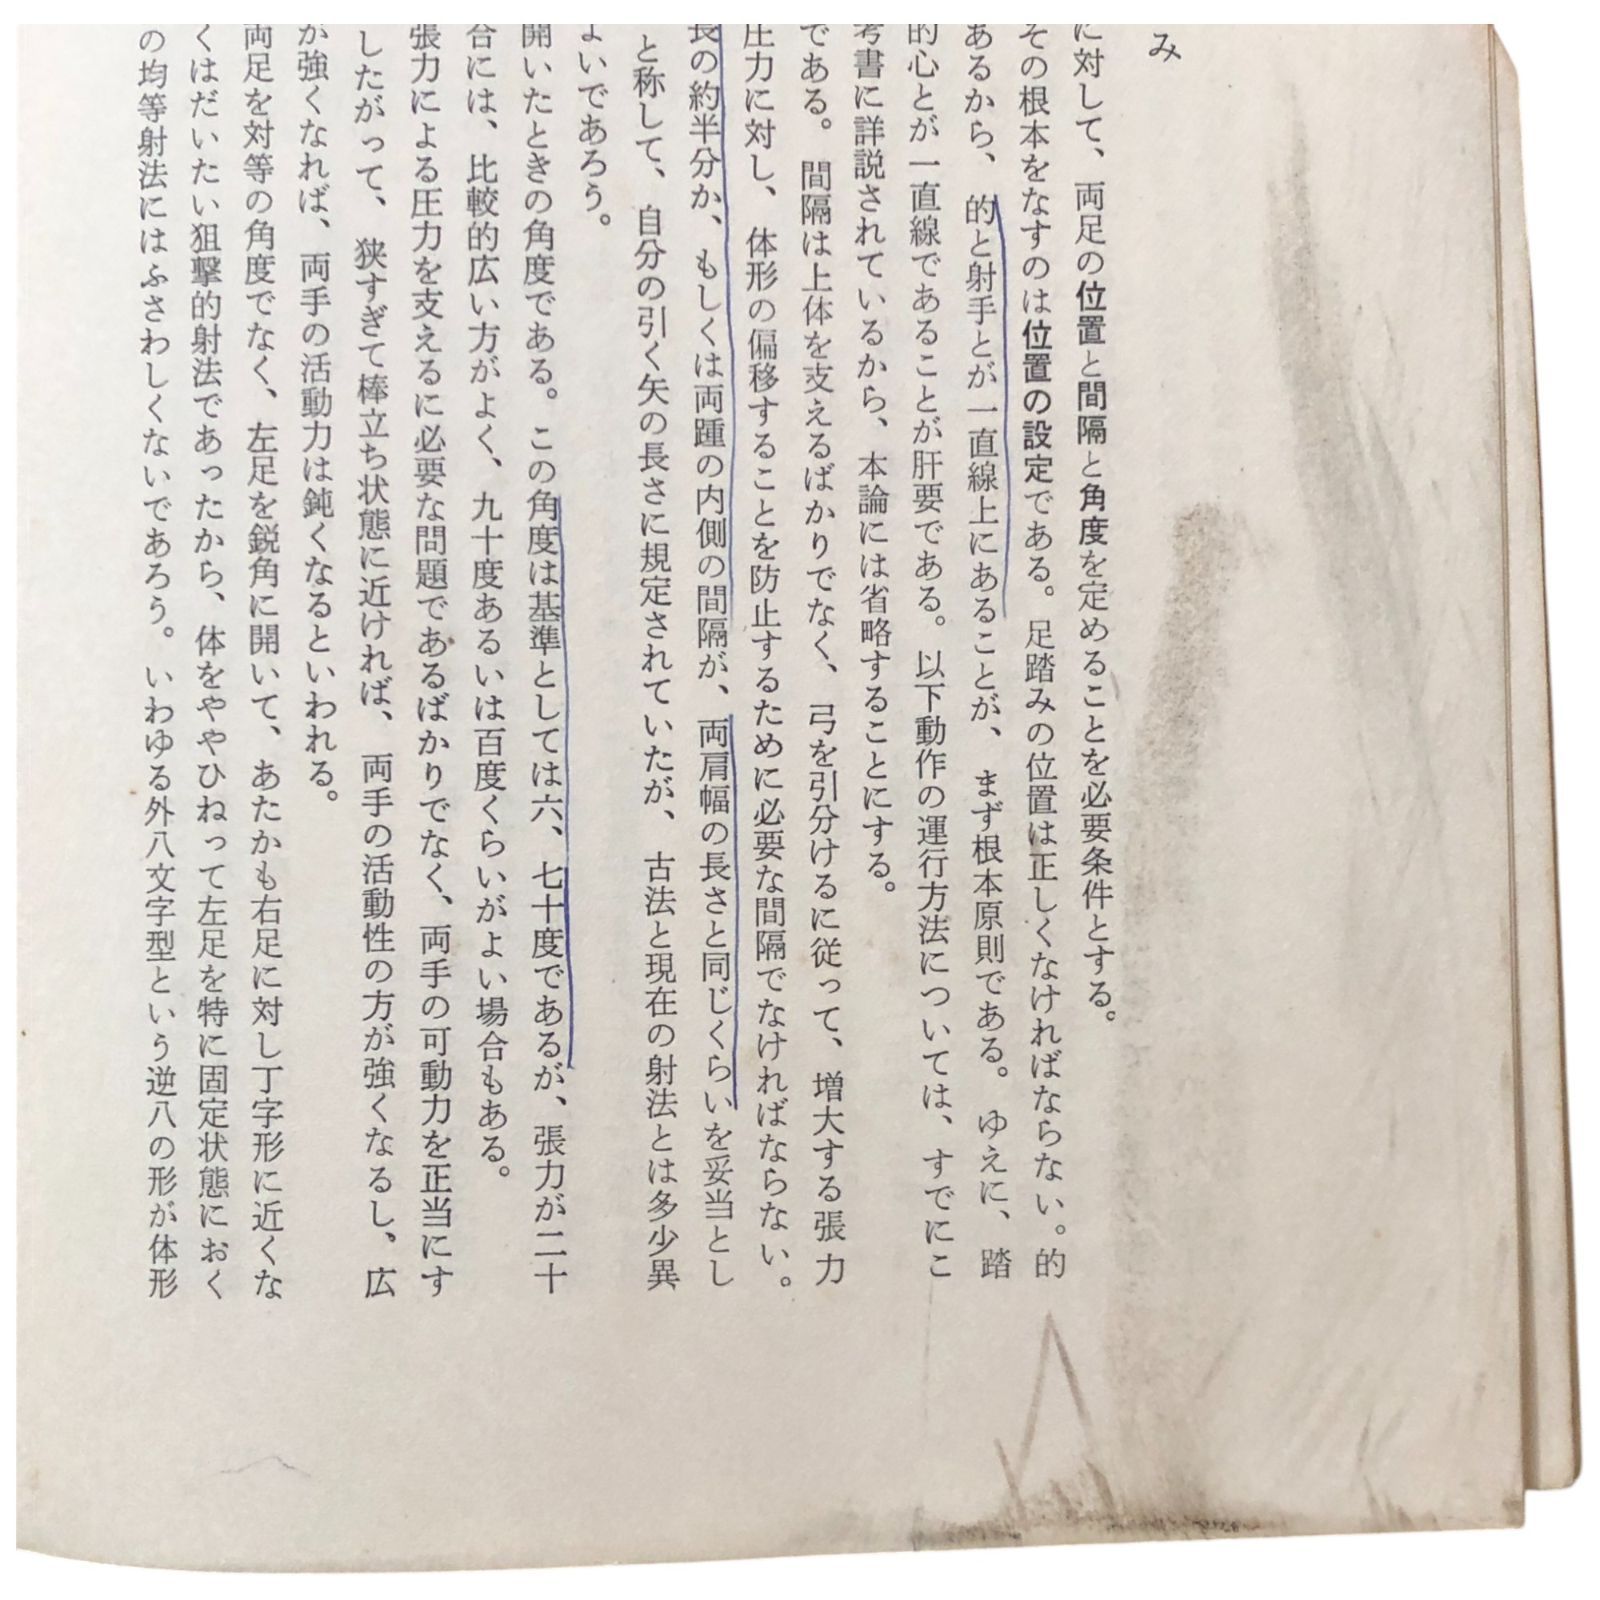 み
に対して、両足の位置と間隔と角度を定めることを必要条件とする。
その根本をなすのは位置の設定である。足踏みの位置は正しくなければならない。的
あるから、的と射手とが一直線上にあることが、まず根本原則である。ゆえに、踏
的心とが一直線であることが肝要である。以下動作の運行方法については、すでにこ
考書に詳説されているから、本論には省略することにする。
である。間隔は上体を支えるばかりでなく、弓を引分けるに従って、増大する張力
圧力に対し、体形の偏移することを防止するために必要な間隔でなければならない。
長の約半分か、もしくは両踵の内側の間隔が、両肩幅の長さと同じくらいを妥当とし
と称して、自分の引く矢の長さに規定されていたが、古法と現在の射法とは多少異
よいであろう。
開いたときの角度である。この角度は基準としては六、七十度であるが、張力が二十
合には、比較的広い方がよく、九十度あるいは百度くらいがよい場合もある。
張力による圧力を支えるに必要な問題であるばかりでなく、両手の可動力を正当にす
したがって、狭すぎて棒立ち状態に近ければ、両手の活動性の方が強くなるし、広
が強くなれば、両手の活動力は鈍くなるといわれる。
両足を対等の角度でなく、左足を鋭角に開いて、あたかも右足に対し丁字形に近くな
くはだいたい狙撃的射法であったから、体をややひねって左足を特に固定状態におく
の均等射法にはふさわしくないであろう。いわゆる外八文字型という逆八の形が体形